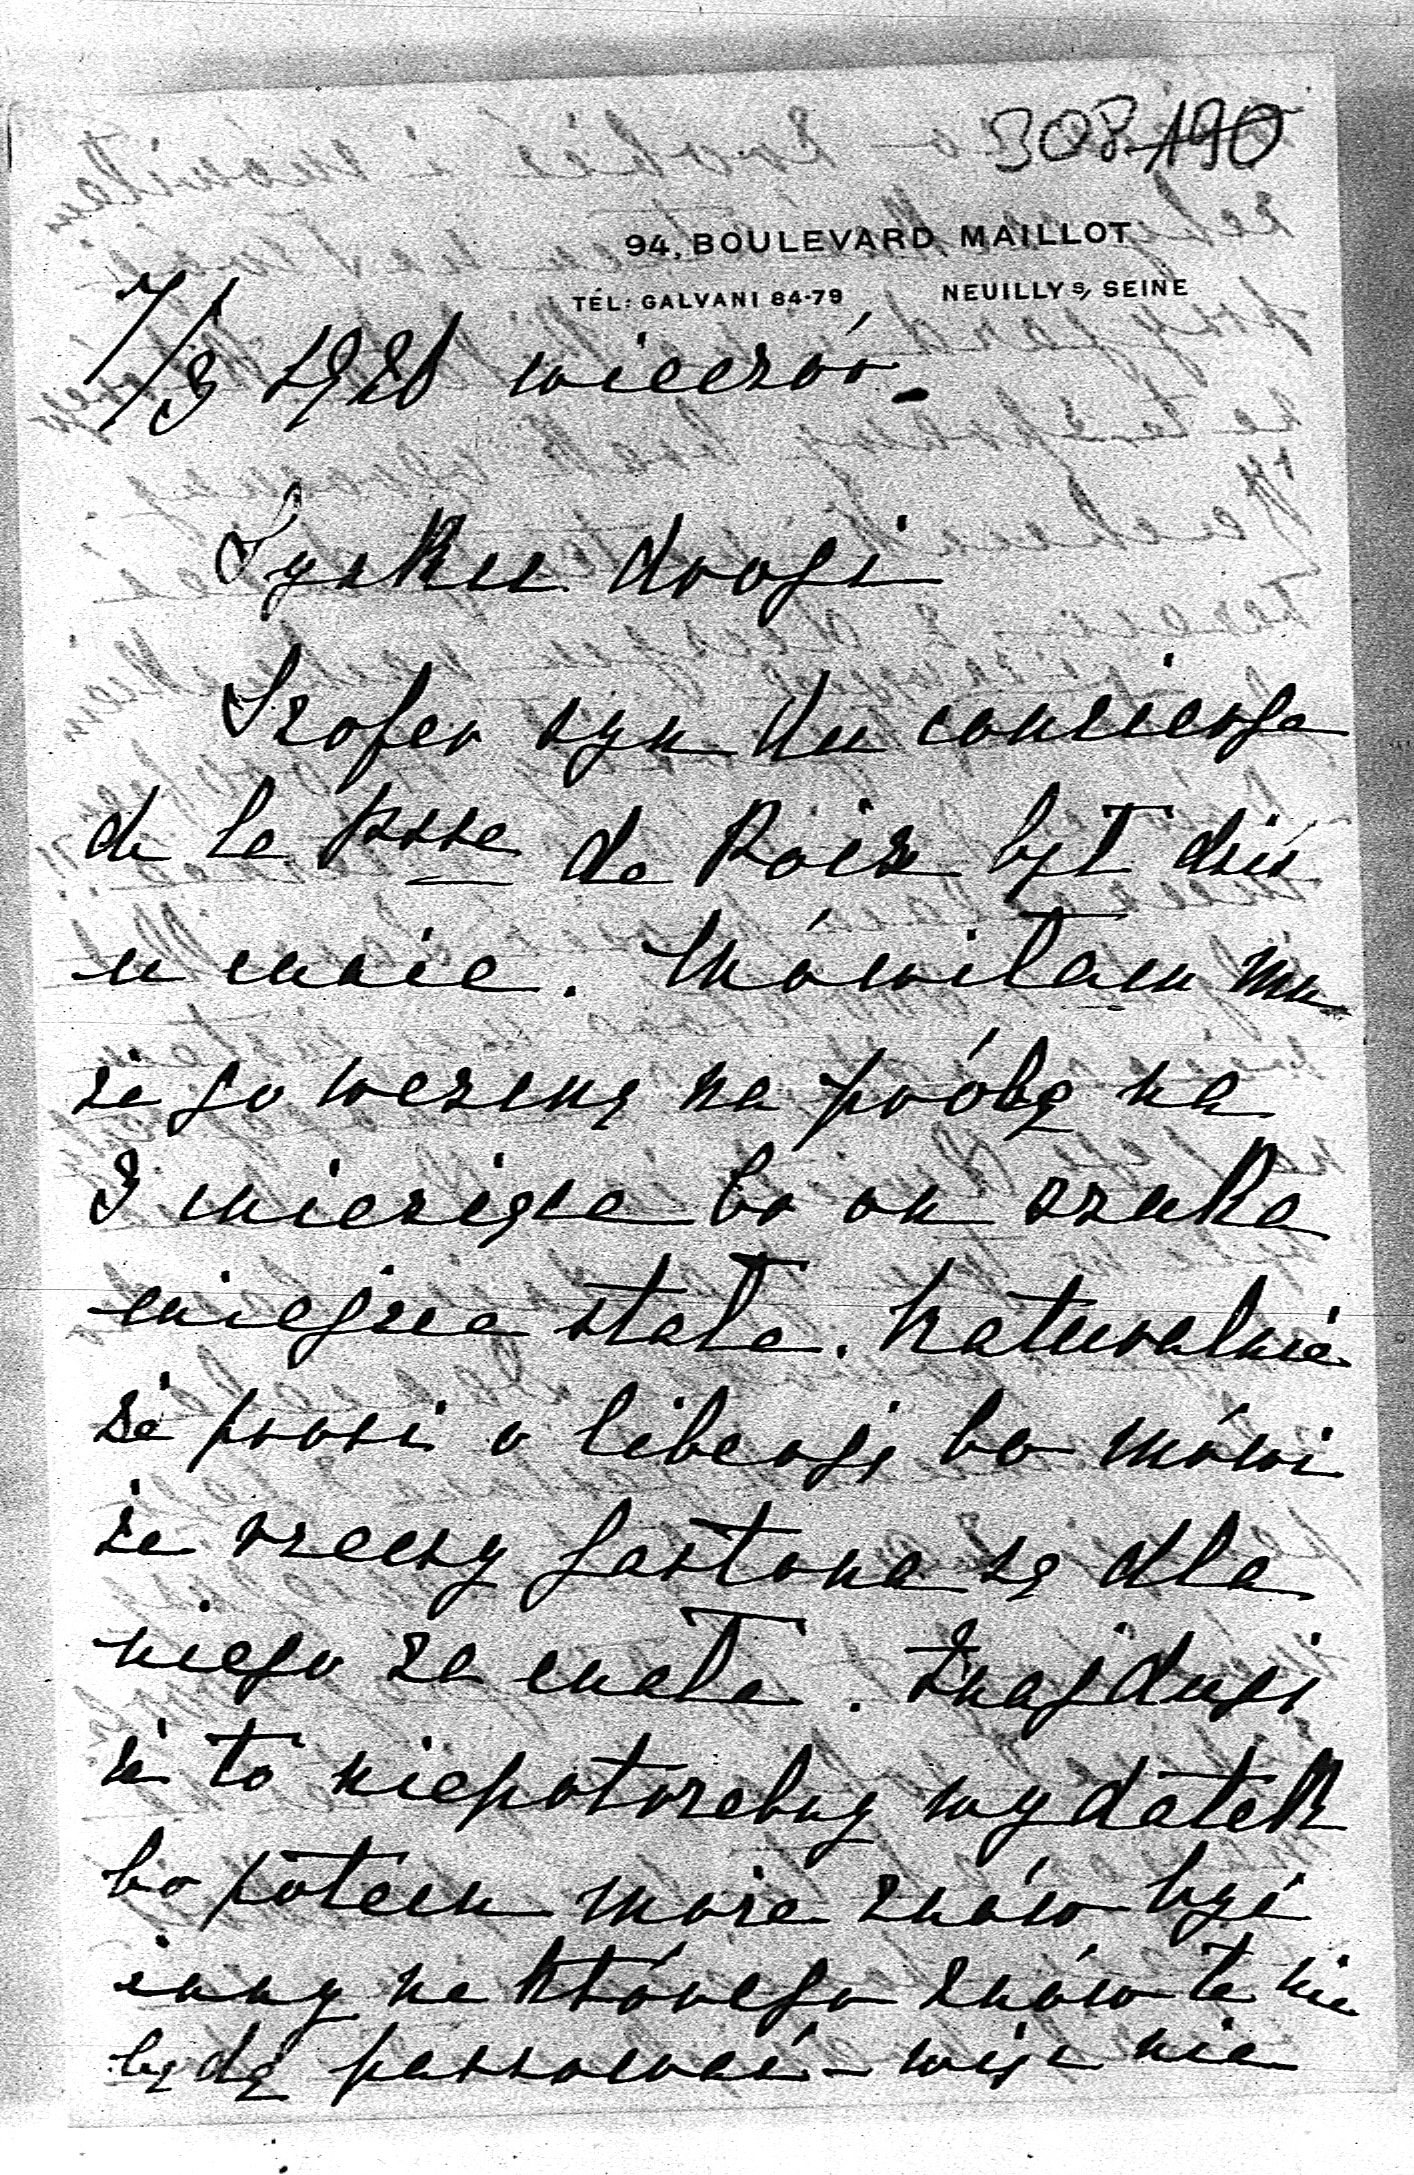 308 190
94, BOULEVARD MAILLOT
TÉL: GALVANI 84-79 NEUILLY S/ SEINE
7/3 1921 wieczór
Synku drogi
Szofer syn du concierge
de la Psse de Poix był dziś
u mnie. Mówiłam mu
że go wezmę na próbę na
3 miesiące bo on szuka
miejsce stałe. Naturalnie
że prosi o liberję bo mówi
że rzeczy Gastona są dla
niego za małe. Znajduję
że to niepotrzebny wydatek
bo potem może znów być
inny na którego znów te nie
będą passować – więc nie